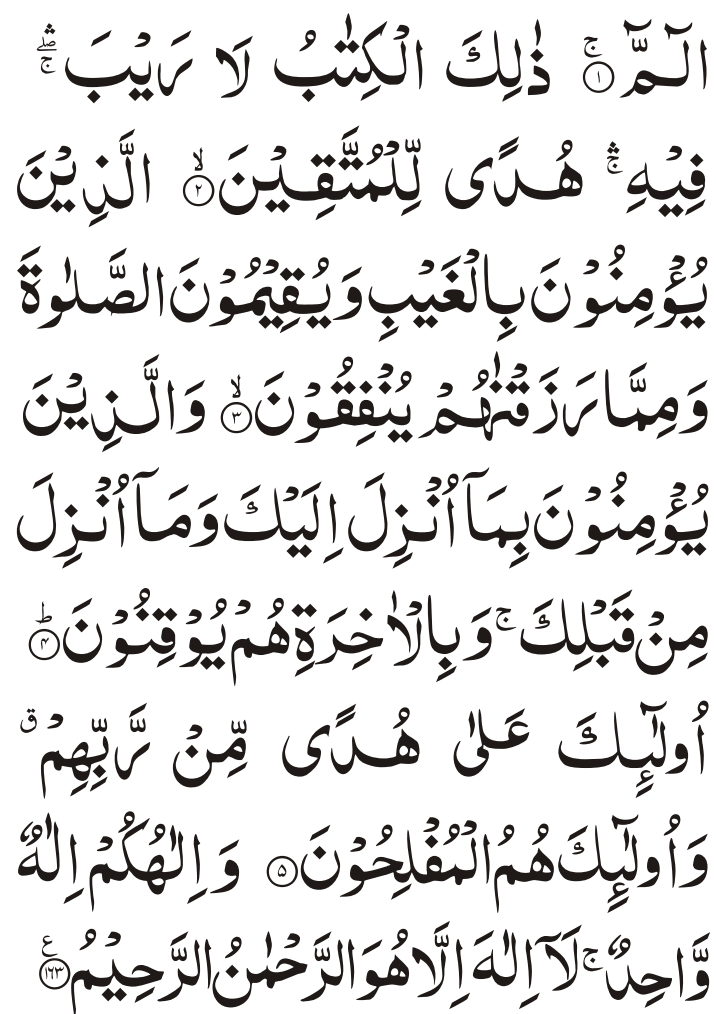 الٓـمّٓ ۚ﴿۱﴾ ذٰلِكَ الْكِتٰبُ لَا رَیْبَ ۛۖۚ
فِیْهِ ۛۚ هُدًی لِّلْمُتَّقِیْنَ ۙ﴿۲﴾ الَّذِیْنَ
یُؤْمِنُوْنَ بِالْغَیْبِ وَیُقِیْمُوْنَ الصَّلٰوةَ
وَمِمَّا رَزَقْنٰهُمْ یُنْفِقُوْنَ ۙ﴿۳﴾ وَالَّذِیْنَ
یُؤْمِنُوْنَ بِمَاۤ اُنْزِلَ اِلَیْكَ وَمَاۤ اُنْزِلَ
مِنْ قَبْلِكَ ۚ وَبِالْاٰخِرَةِ هُمْ یُوْقِنُوْنَ ؕ﴿۴﴾
اُولٰٓئِكَ عَلٰی هُدًی مِّنْ رَّبِّهِمْ ۗ
وَاُولٰٓئِكَ هُمُ الْمُفْلِحُوْنَ ﴿۵﴾ وَاِلٰهُكُمْ اِلٰهٌ
وَّاحِدٌ ۚ لَاۤ اِلٰهَ اِلَّا هُوَ الرَّحْمٰنُ الرَّحِیْمُ ﴿۱۶۳﴾ ع